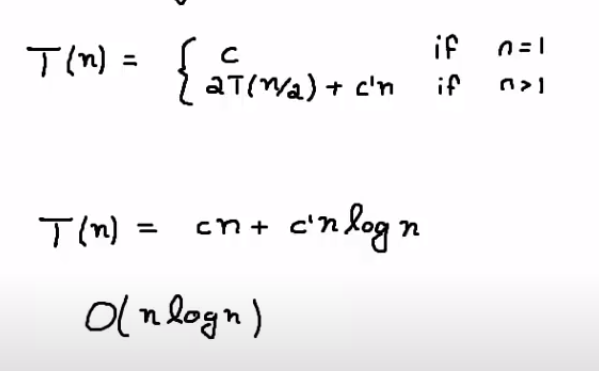 T(n) = { c if n=1
2T(n/2) + c'n if n>1
T(n) = cn + c'n log n
O(n log n)